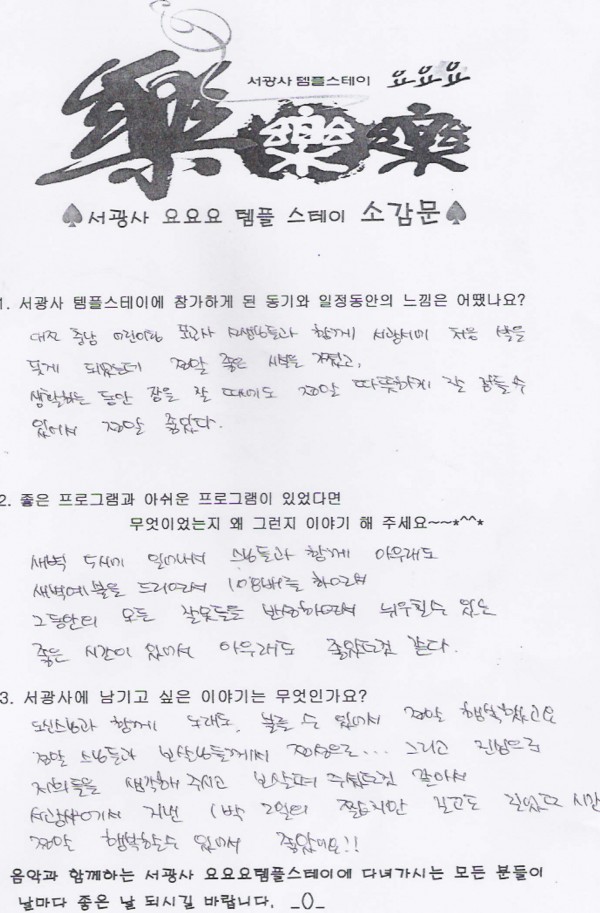 서광사 템플스테이 요요요
樂 樂 樂
♠서광사 요요요 템플 스테이 소감문♠
1. 서광사 템플스테이에 참가하게 된 동기와 일정동안의 느낌은 어땠나요?
대전 충남 어린이 포교사 선생님들과 함께 서광사에 처음 발을
딛게 되었는데 정말 좋은 시간을 가졌고,
생활하는 동안 잠을 잘 때에도 정말 따뜻하게 잘 잠들수
있어서 정말 좋았다.
2. 좋은 프로그램과 아쉬운 프로그램이 있었다면
무엇이었는지 왜 그런지 이야기 해 주세요~~*^^*
새벽 일어나서 스님들과 함께 아무래도
새벽예불을 드리면서 108배를 하면서
그동안의 모든 잘못들을 반성하면서 뉘우칠수 있는
좋은 시간이 있어서 아무래도 좋았던것 같다.
3. 서광사에 남기고 싶은 이야기는 무엇인가요?
도신스님과 함께 노래도 부를 수 있어서 정말 행복했고요
정말 스님들과 보살님들께서 정성으로... 그리고 진심으로
저희들을 생각해 주시고 보살펴 주셨던것 같아서
서광사에서 지낸 1박 2일의 짧지만 길고도 길었던 시간
정말 행복할수 있어서 좋았어요!!
음악과 함께하는 서광사 요요요템플스테이에 다녀가시는 모든 분들이
날마다 좋은 날 되시길 바랍니다. _()_